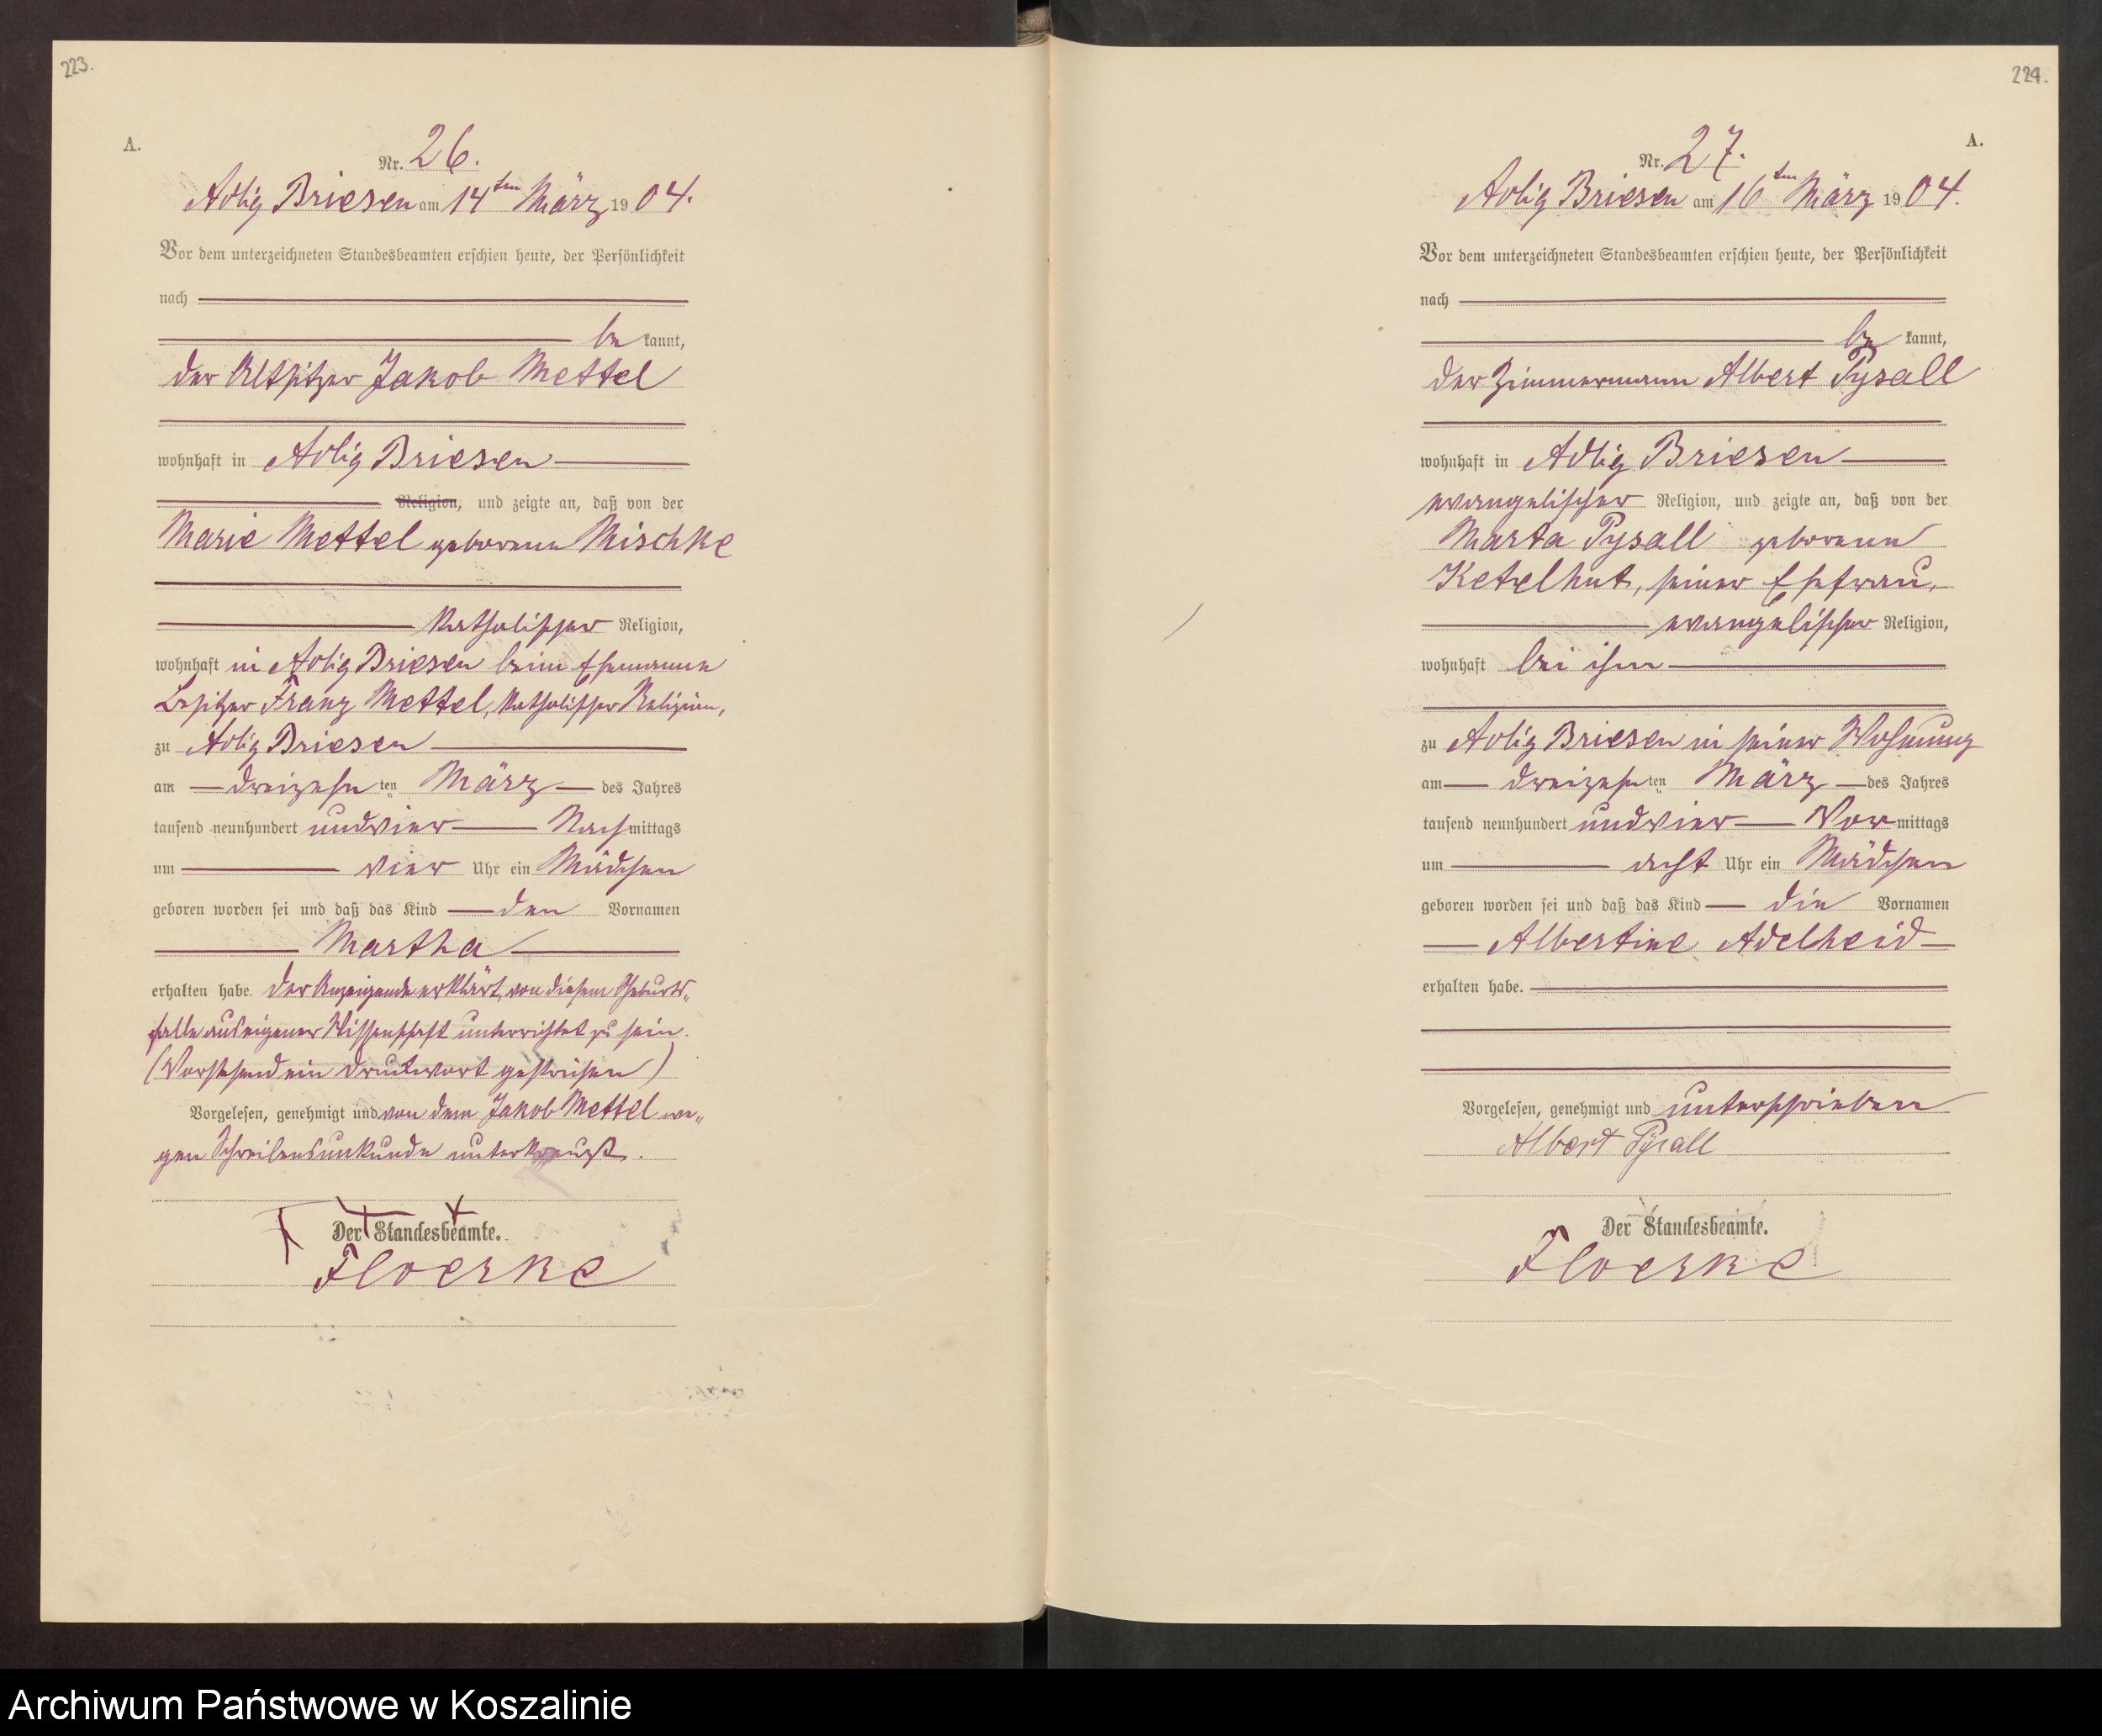 223.
A.
Nr. 26.
Adlig Briesen am 14ten März 1904.
Vor dem unterzeichneten Standesbeamten erschien heute, der Persönlichkeit
nach
be kannt,
der Altsitzer Jakob Mettel
wohnhaft in Adlig Briesen
Religion, und zeigte an, daß von der
Marie Mettel geborenen Mischke
katholischer Religion,
wohnhaft in Adlig Briesen beim Ehemanne
Besitzer Franz Mettel, katholischer Religion,
zu Adlig Briesen
am dreizehnten März des Jahres
tausend neunhundert und vier Nachmittags
um vier Uhr ein Mädchen
geboren worden sei und daß das Kind den Vornamen
Martha
erhalten habe. Der Anzeigende erklärt, von diesem Geburts-
falle aus eigener Wissenschaft unterrichtet zu sein.
(Vorstehend ein Druckwort gestrichen)
Vorgelesen, genehmigt und von dem Jakob Mettel we-
gen Schreibensunkunde unterkreuzt.
+ + +
Der Standesbeamte.
Floerke
224.
A.
Nr. 27.
Adlig Briesen am 16ten März 1904.
Vor dem unterzeichneten Standesbeamten erschien heute, der Persönlichkeit
nach
be kannt,
der Zimmermann Albert Pysall
wohnhaft in Adlig Briesen
evangelischer Religion, und zeigte an, daß von der
Marta Pysall geborenen
Ketelhut, seiner Ehefrau,
evangelischer Religion,
wohnhaft bei ihm
zu Adlig Briesen in seiner Wohnung
am dreizehnten März des Jahres
tausend neunhundert und vier Vormittags
um acht Uhr ein Mädchen
geboren worden sei und daß das Kind die Vornamen
Albertine Adelheid
erhalten habe.
Vorgelesen, genehmigt und unterschrieben
Albert Pysall
Der Standesbeamte.
Floerke
Archiwum Państwowe w Koszalinie